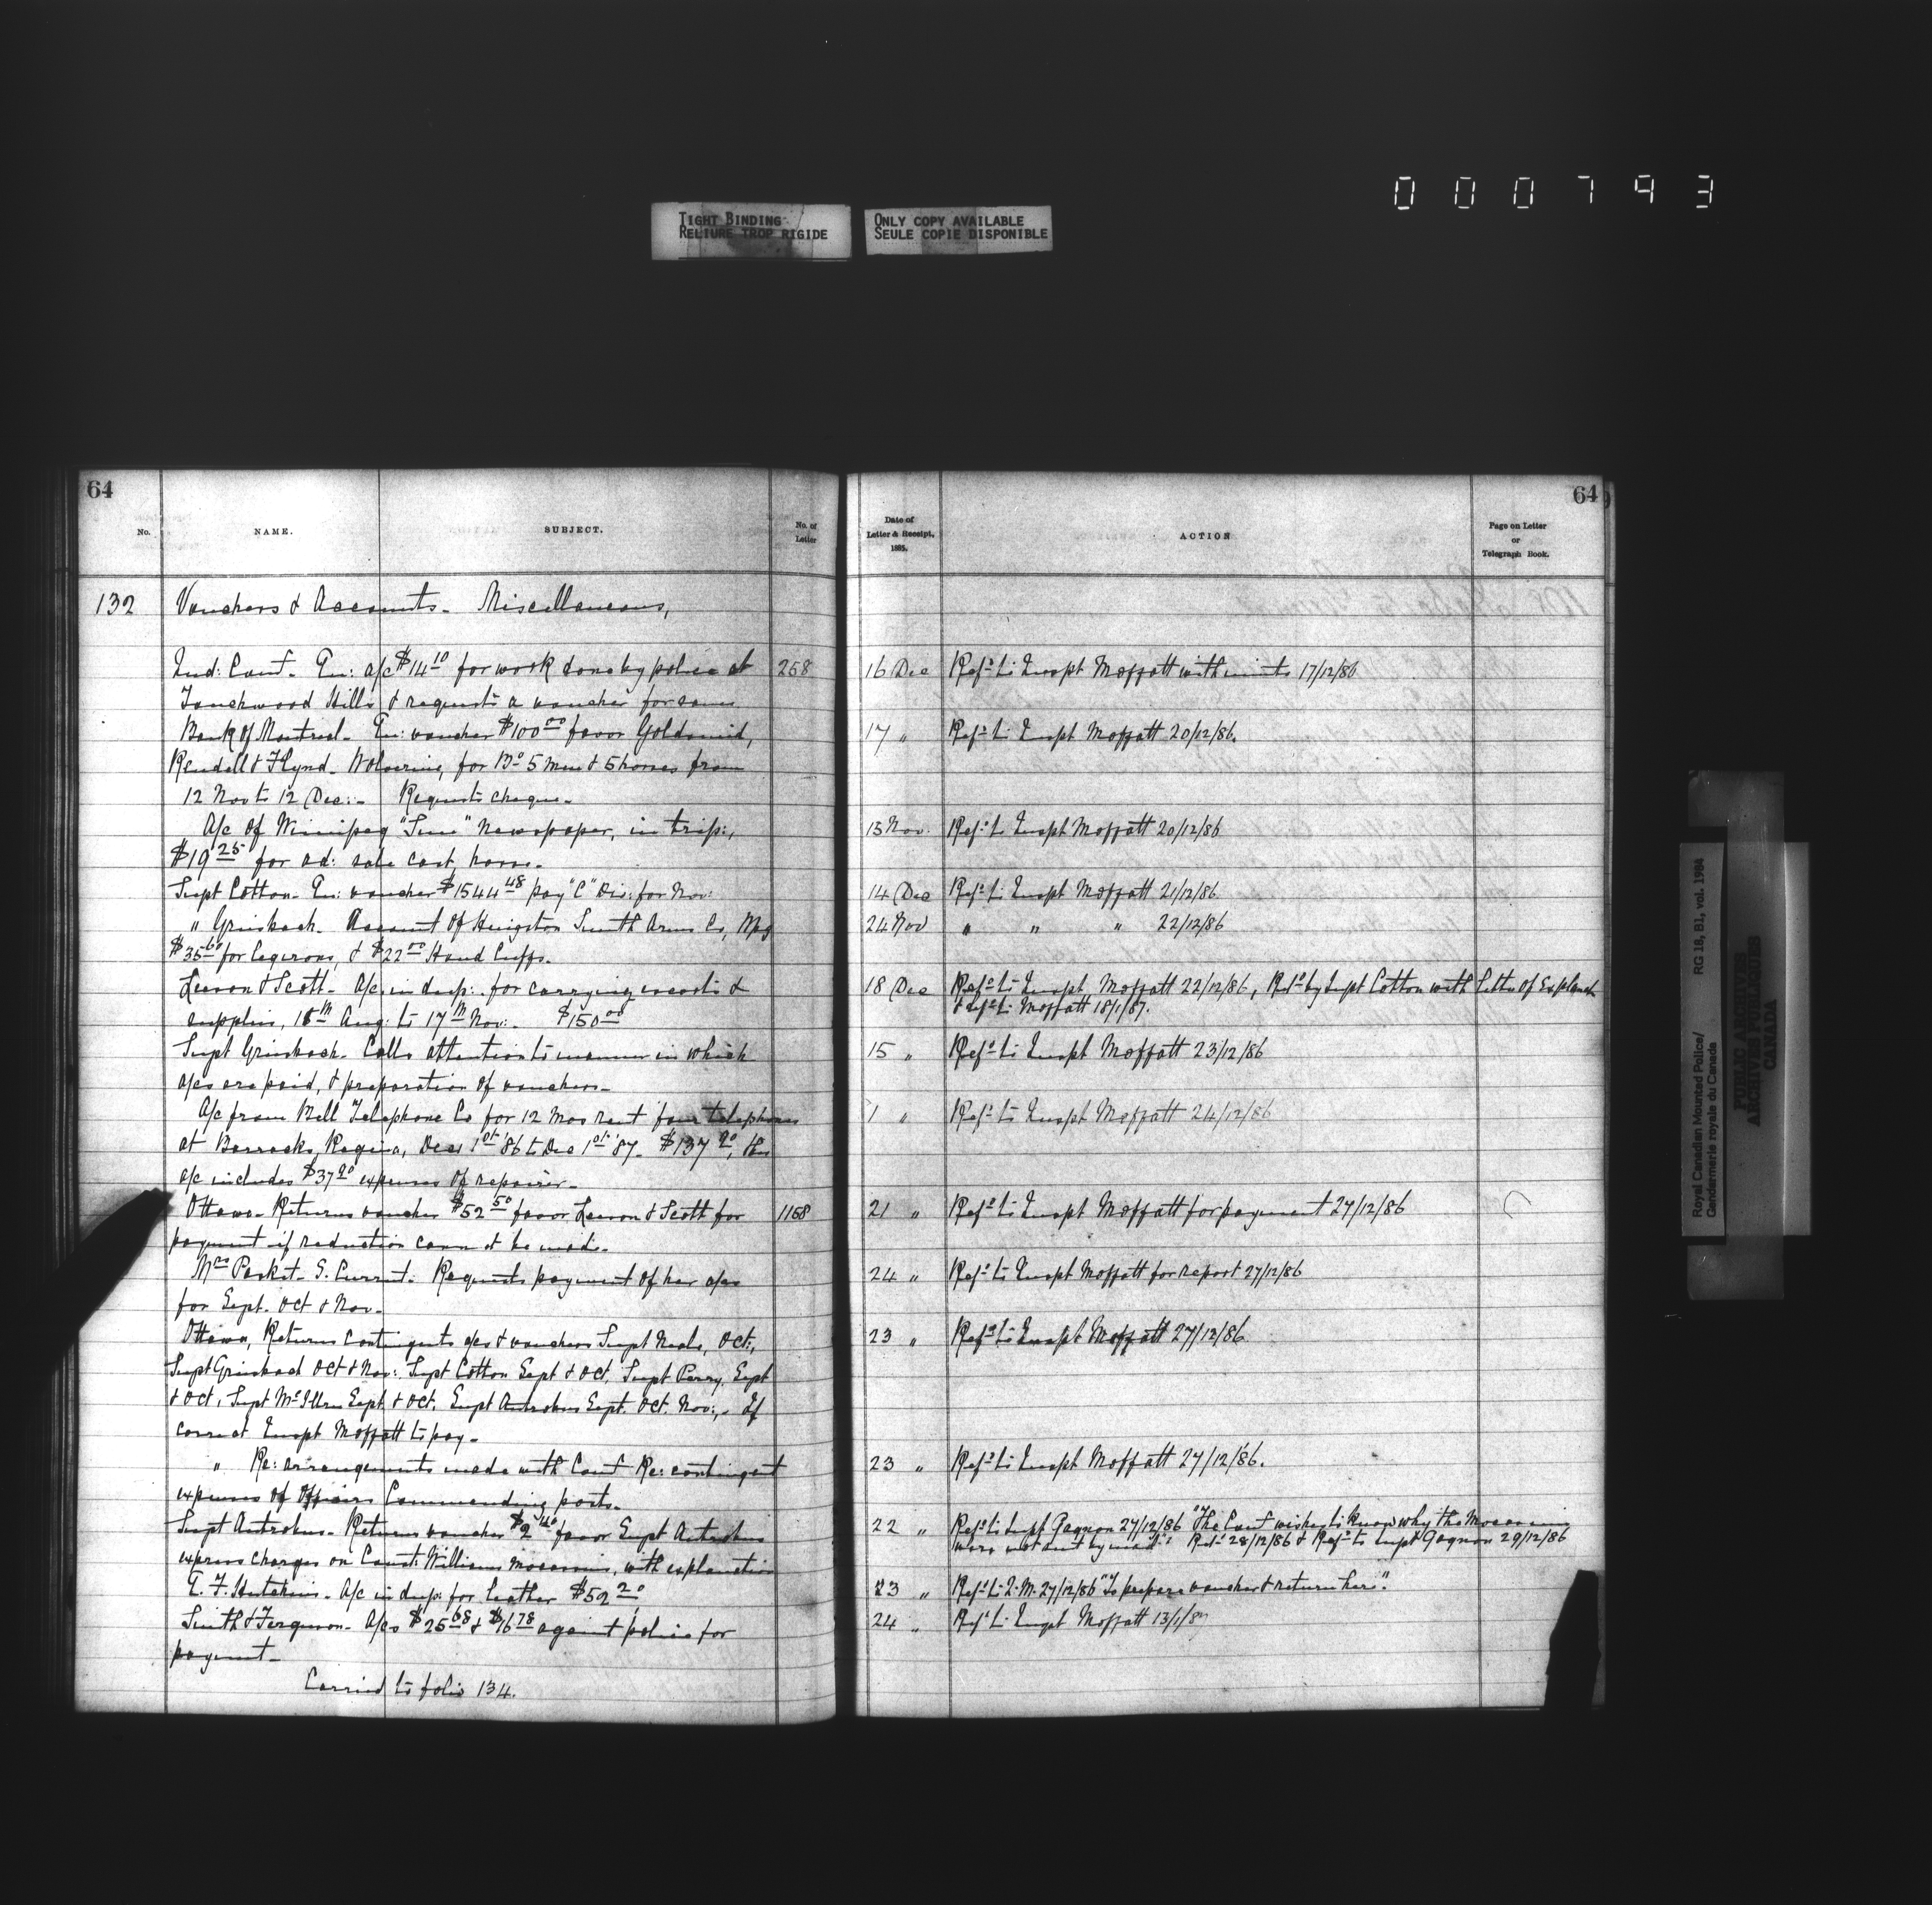 000793
TIGHT BINDING
RELIURE TROP RIGIDE
ONLY COPY AVAILABLE
SEULE COPIE DISPONIBLE
64
No.
NAME.
SUBJECT.
No. of
Letter
132 Vouchers & Accounts - Miscellaneous,
Ind: Comr - En: a/c $14 10 for work done by police at 258
Touchwood Hills & requests a voucher for same
Bank of Montreal - En: voucher $100 00 favor Goldsmid,
Rendell & Flynd - Wolverine, for Bd 5 men & 5 horses from
12 Nov to 12 Dec: - Requests cheque -
A/c of Winnipeg "Sun" Newspaper, in trip:,
$19 25 for ad: sale cast horse -
Supt Cotton - En: voucher $1544 48 pay "C" Div: for Nov:
" Griesbach - Account of Hingston Smith Arms Co, Wpg
$35 60 for legirons, & $22 00 Hand Cuffs -
Leeson & Scott - A/c in dup: for carrying escorts &
supplies, 15th Aug: to 17th Nov: - $150 00
Supt Griesbach - Calls attention to manner in which
a/cs are paid, & preparation of vouchers -
A/c from Bell Telephone Co for 12 Mos rent four telephones
at Barracks, Regina, Dec 1st '86 to Dec 1st '87 - $137 90, this
a/c includes $37 90 expenses of repairer -
Ottawa - Returns voucher $52 50 favor Leeson & Scott for 1168
payment if reduction cannot be made -
Mrs Parkst - S. Current - Requests payment of her a/cs
for Sept. Oct & Nov -
Ottawa, Returns Contingents a/cs & vouchers Supt Neale, Oct:,
Supt Griesbach Oct & Nov:, Supt Cotton Sept & Oct, Supt Perry, Sept
& Oct, Supt McIllree Sept. & Oct. Supt Antrobus Sept. Oct. Nov:, - If
correct Inspt Moffatt to pay -
" Re: arrangements made with Comr Re: contingent
expenses of Officers Commanding posts -
Supt Antrobus - Returns voucher $2 40 favor Supt Antrobus
express charges on Const: Williams moccasins, with explanation
E. F. Hutchins - A/c in dup: for leather $52 20
Smith & Ferguson - A/cs $25 68 & $16 78 against police for
payment -
Carried to folio 134.
64
Date of
Letter & Receipt,
1885.
ACTION
Page on Letter
or
Telegraph Book.
16 Dec Refd to Inspt Moffatt with minute 17/12/86
17 " Refd to Inspt Moffatt 20/12/86.
13 Nov. Refd to Inspt Moffatt 20/12/86
14 Dec Refd to Inspt Moffatt 21/12/86
24 Nov " " " 22/12/86
18 Dec Refd to Inspt Moffatt 22/12/86, Retd by Supt Cotton with Letter of Explanatn
& refd to Moffatt 18/1/87.
15 " Refd to Inspt Moffatt 23/12/86
1 " Refd to Inspt Moffatt 24/12/86
21 " Refd to Inspt Moffatt for payment 27/12/86
24 " Refd to Inspt Moffatt for report 27/12/86
23 " Refd to Inspt Moffatt 27/12/86
23 " Refd to Inspt Moffatt 27/12/86.
22 " Refd to Supt Gagnon 27/12/86 "The Comr wishes to know why the Moccasins
were not sent by mail": Retd 28/12/86 & Refd to Supt Gagnon 29/12/86
23 " Refd to Q.M. 27/12/86 "To prepare voucher & return here".
24 " Refd to Inspt Moffatt 13/1/87
Royal Canadian Mounted Police/ RG 18, B1, vol. 1984
Gendarmerie royale du Canada
PUBLIC ARCHIVES
ARCHIVES PUBLIQUES
CANADA